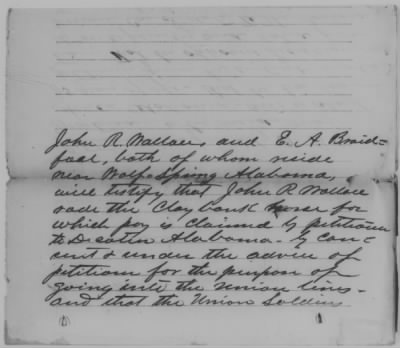 John R. Wallace, and E. A. Braid=
foot, both of whom reside
near Wolf Spring Alabama,
will testify that John R Wallace
rode the Clay bank horse for
which pay is claimed by petitioner
to Decatur Alabama - by con-
sent & under the advice of
petitioner for the purpose of
going into the Union lines -
and that the Union Soldiers